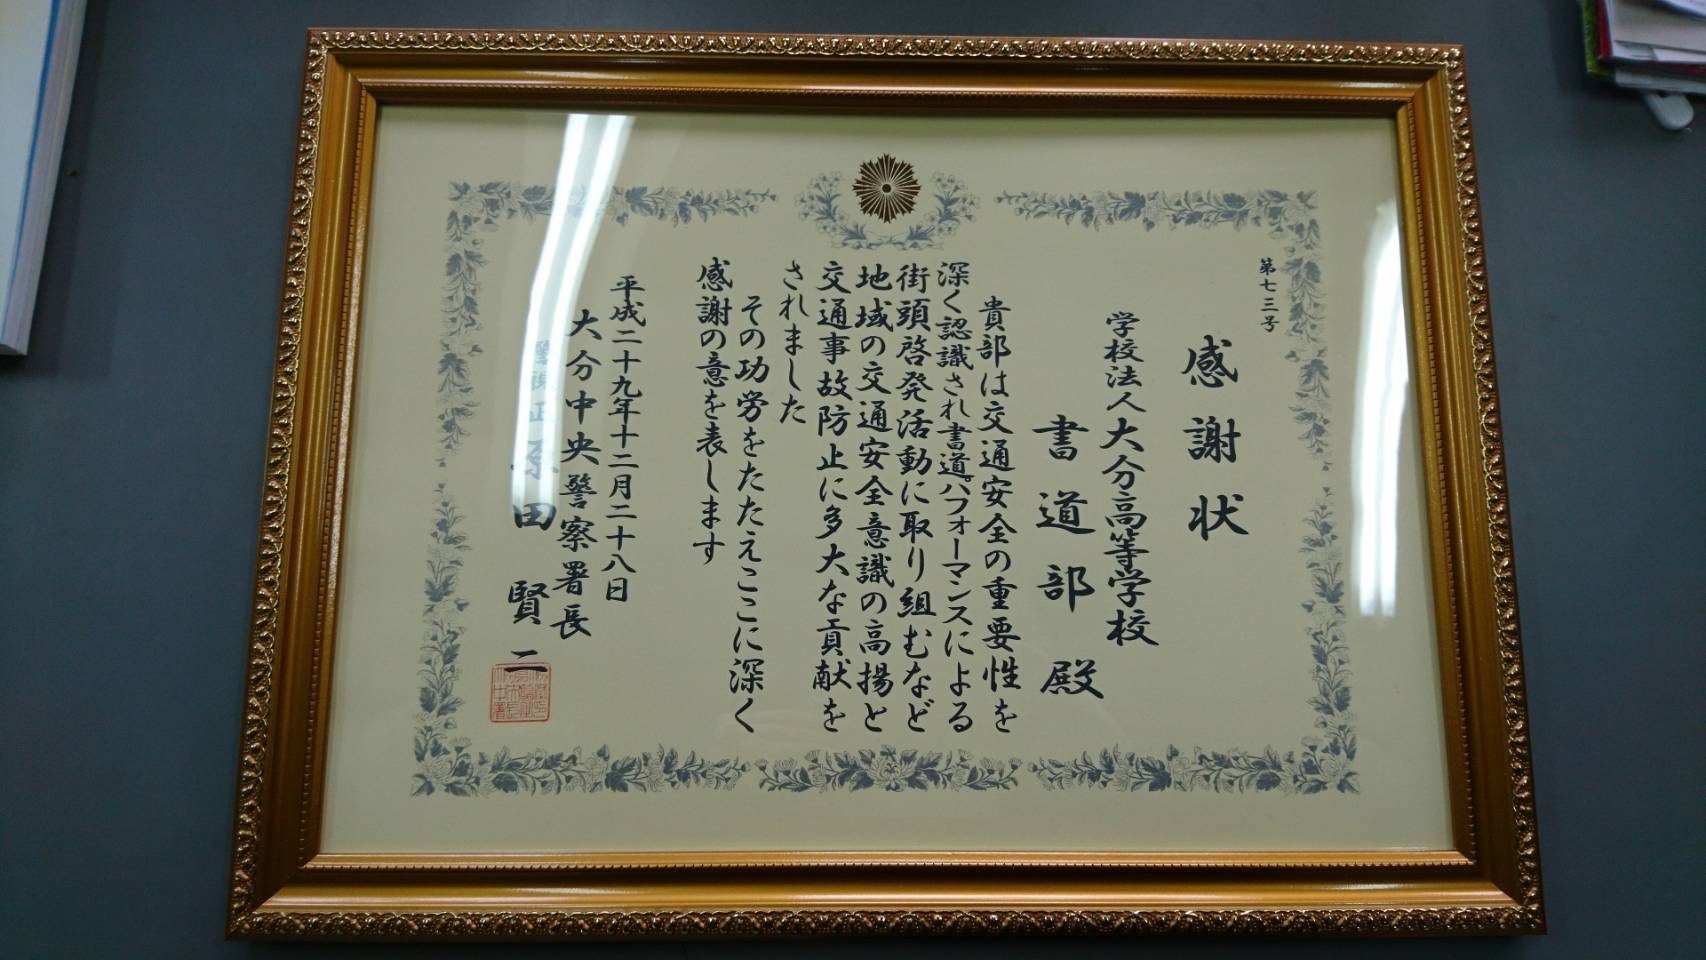 第七三号
感謝状
学校法人大分高等学校
書道部殿
貴部は交通安全の重要性を
深く認識され書道パフォーマンスによる
街頭啓発活動に取り組むなど
地域の交通安全意識の高揚と
交通事故防止に多大な貢献を
されました
その功労をたたえここに深く
感謝の意を表します
平成二十九年十二月二十八日
大分中央警察署長
警視正 原田賢二